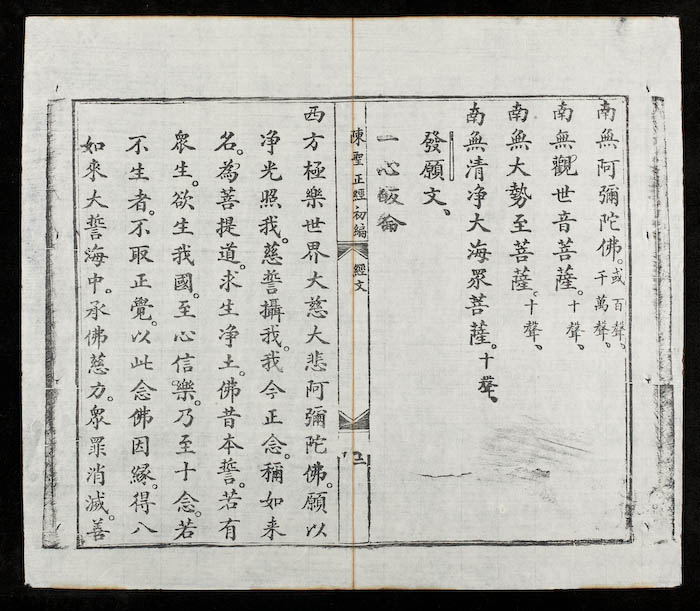 南無阿彌陀佛。或百聲、千萬聲、
南無觀世音菩薩。十聲、
南無大勢至菩薩。十聲、
南無清净大海眾菩薩。十聲、
發願文、
一心皈命
陳聖正經初編 經文
西方極樂世界大慈大悲阿彌陀佛。願以
净光照我。慈誓攝我。我今正念。稱如来
名。為菩提道。求生净土。佛昔本誓。若有
眾生。欲生我國。至心信樂。乃至十念。若
不生者。不取正覺。以此念佛因緣。得八
如來大誓海中。承佛慈方。眾罪消滅。善